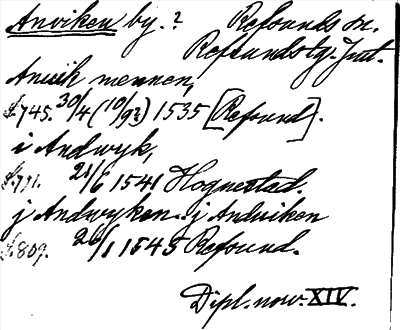 Anviken by.? Refsunds sn.
Refsundstg. Jmt.
Anuik mennen,
S.745. 30/4 (10/9?) 1535 [Refsund].
i Andwyk,
S.771. 21/6 1541 Hognestad.
j Andwyken. j Anduiken
S.809. 26/1 1545 Refsund.
Dipl. norv. XIV.